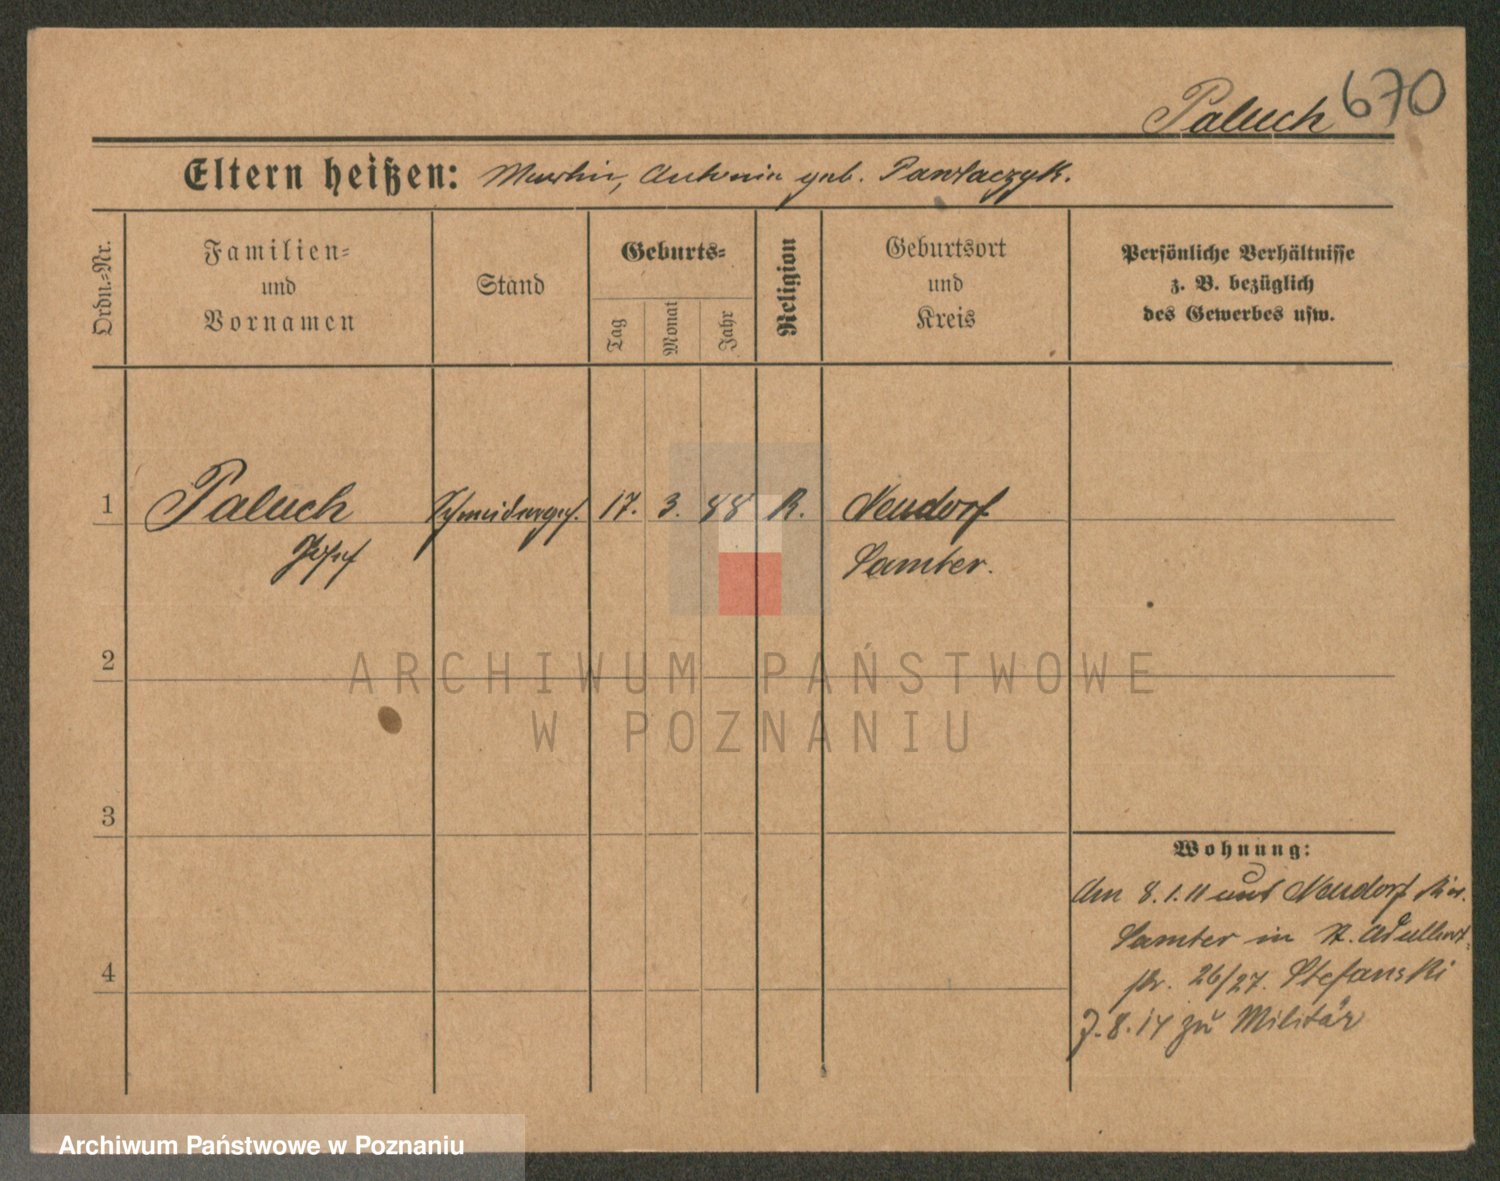 Paluch 670
Eltern heißen: Martin, Antonia geb. Pawlaczyk.
Ordn.-Nr.
Familien-
und
Vornamen
Stand
Geburts-
Tag
Monat
Jahr
Religion
Geburtsort
und
Kreis
Persönliche Verhältnisse
z. B. bezüglich
des Gewerbes usw.
1 Paluch Schneiderges. 17. 3. 88 K. Neudorf
Josef Samter.
2
3
4
Wohnung:
Am 8.1.11 aus Neudorf Kr.
Samter in St.
str. 26/27. Stefanski
7.8.14 zu Militär
ARCHIWUM PAŃSTWOWE
W POZNANIU
Archiwum Państwowe w Poznaniu